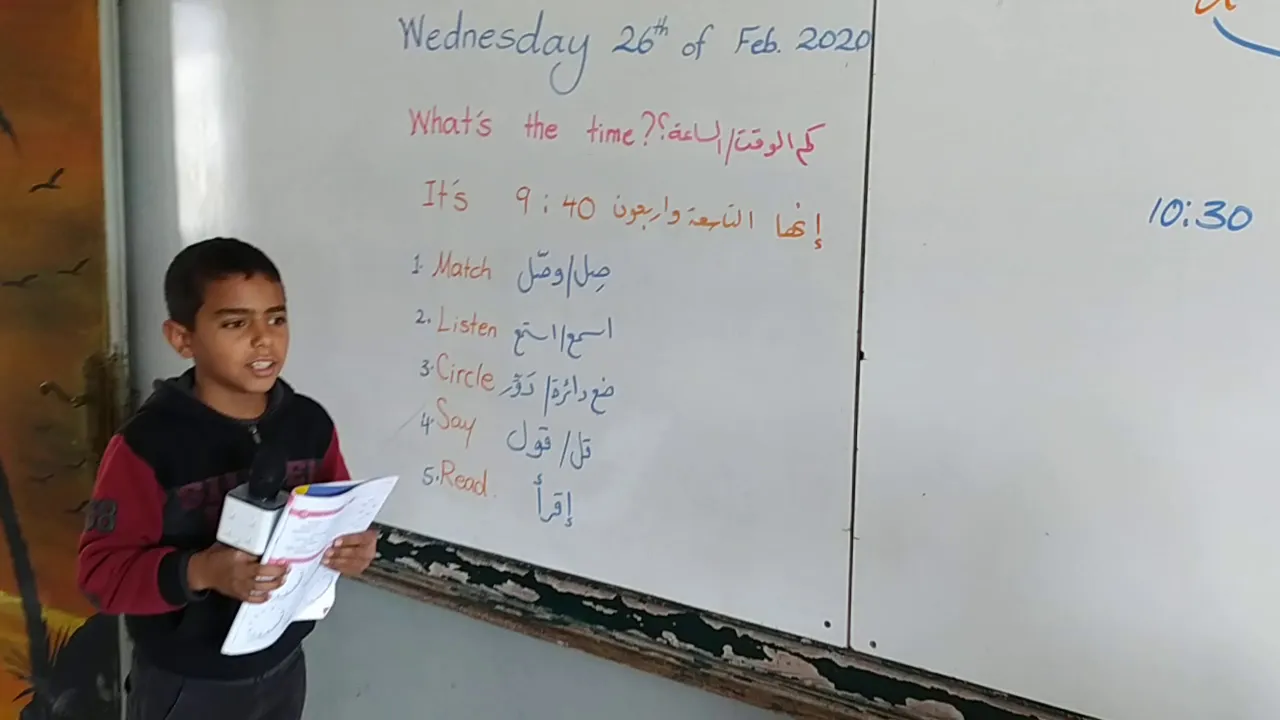 Wednesday 26th of Feb. 2020
What's the time? كم الوقت/الساعة؟
It's 9:40 إنها التاسعة واربعون
1. Match صِل/وصّل
2. Listen اسمع/استمع
3. Circle ضع دائرة/دَوِّر
4. Say قل/قول
5. Read. إقرأ
10:30